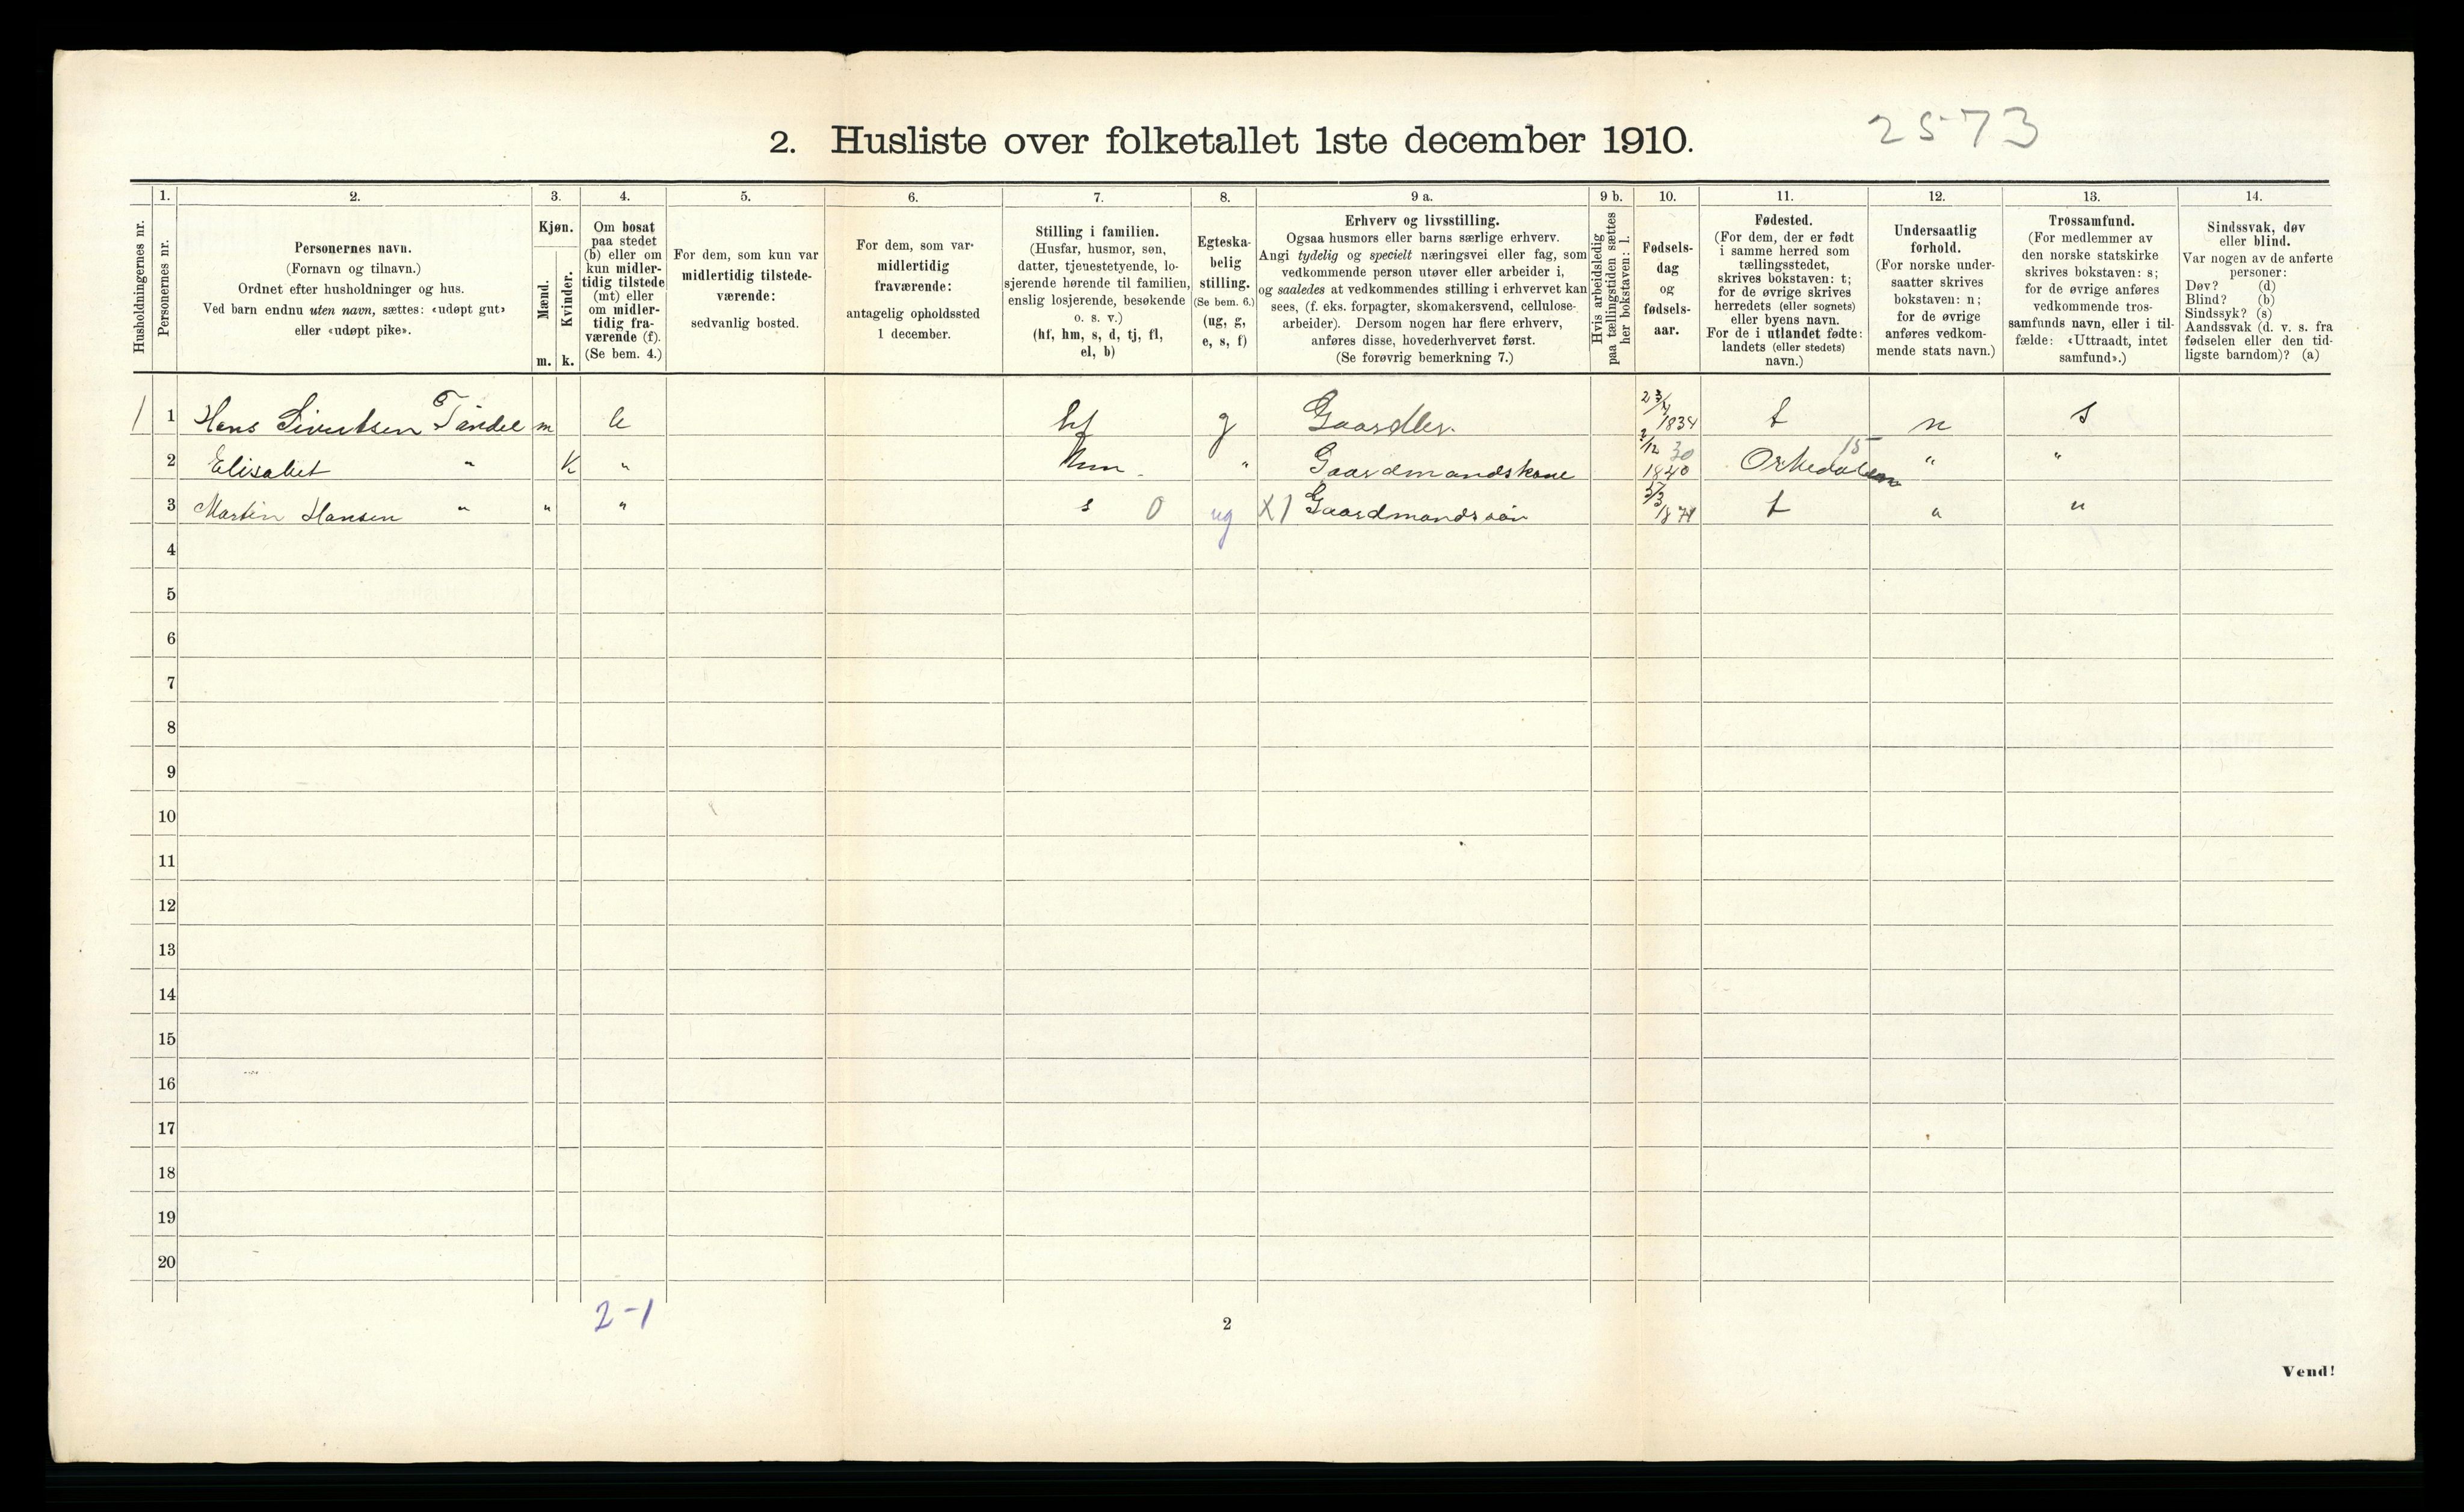 2. Husliste over folketallet 1ste december 1910.
2573
Husholdningernes nr.
1.
Personernes nr.
2.
Personernes navn.
(Fornavn og tilnavn.)
Ordnet efter husholdninger og hus.
Ved barn endnu uten navn, sættes: «udøpt gut»
eller «udøpt pike».
3.
Kjøn.
Mænd.
m.
Kvinder.
k.
4.
Om bosat
paa stedet
(b) eller om
kun midler-
tidig tilstede
(mt) eller
om midler-
tidig fra-
værende (f).
(Se bem. 4.)
5.
For dem, som kun var
midlertidig tilstede-
værende:
sedvanlig bosted.
6.
For dem, som var
midlertidig
fraværende:
antagelig opholdssted
1 december.
7.
Stilling i familien.
(Husfar, husmor, søn,
datter, tjenestetyende, lo-
sjerende hørende til familien,
enslig losjerende, besøkende
o. s. v.)
(hf, hm, s, d, tj, fl,
el, b)
8.
Egteska-
belig
stilling.
(Se bem. 6.)
(ug, g,
e, s, f)
9 a.
Erhverv og livsstilling.
Ogsaa husmors eller barns særlige erhverv.
Angi tydelig og specielt næringsvei eller fag, som
vedkommende person utøver eller arbeider i,
og saaledes at vedkommendes stilling i erhvervet kan
sees, (f. eks. forpagter, skomakersvend, cellulose-
arbeider). Dersom nogen har flere erhverv,
anføres disse, hovederhvervet først.
(Se forøvrig bemerkning 7.)
9 b.
Hvis arbeidsledig
paa tællingstiden sættes
her bokstaven: l.
10.
Fødsels-
dag
og
fødsels-
aar.
11.
Fødested.
(For dem, der er født
i samme herred som
tællingsstedet,
skrives bokstaven: t;
for de øvrige skrives
herredets (eller sognets)
eller byens navn.
For de i utlandet fødte:
landets (eller stedets)
navn.)
12.
Undersaatlig
forhold.
(For norske under-
saatter skrives
bokstaven: n;
for de øvrige
anføres vedkom-
mende stats navn.)
13.
Trossamfund.
(For medlemmer av
den norske statskirke
skrives bokstaven: s;
for de øvrige anføres
vedkommende tros-
samfunds navn, eller i til-
fælde: «Uttraadt, intet
samfund».)
14.
Sindssvak, døv
eller blind.
Var nogen av de anførte
personer:
Døv? (d)
Blind? (b)
Sindssyk? (s)
Aandssvak (d. v. s. fra
fødselen eller den tid-
ligste barndom)? (a)
1 1 Hans Sivertsen m b hf g 1834 t n s
2 Elisabet " k " hm " Gaardmandskone 2/12 30 1840 Orkedalen 15 " "
3 Martin Hansen " " " s 0 ug X1 Gaardmandssøn t " "
4
5
6
7
8
9
10
11
12
13
14
15
16
17
18
19
20
2-1
2
Vend!